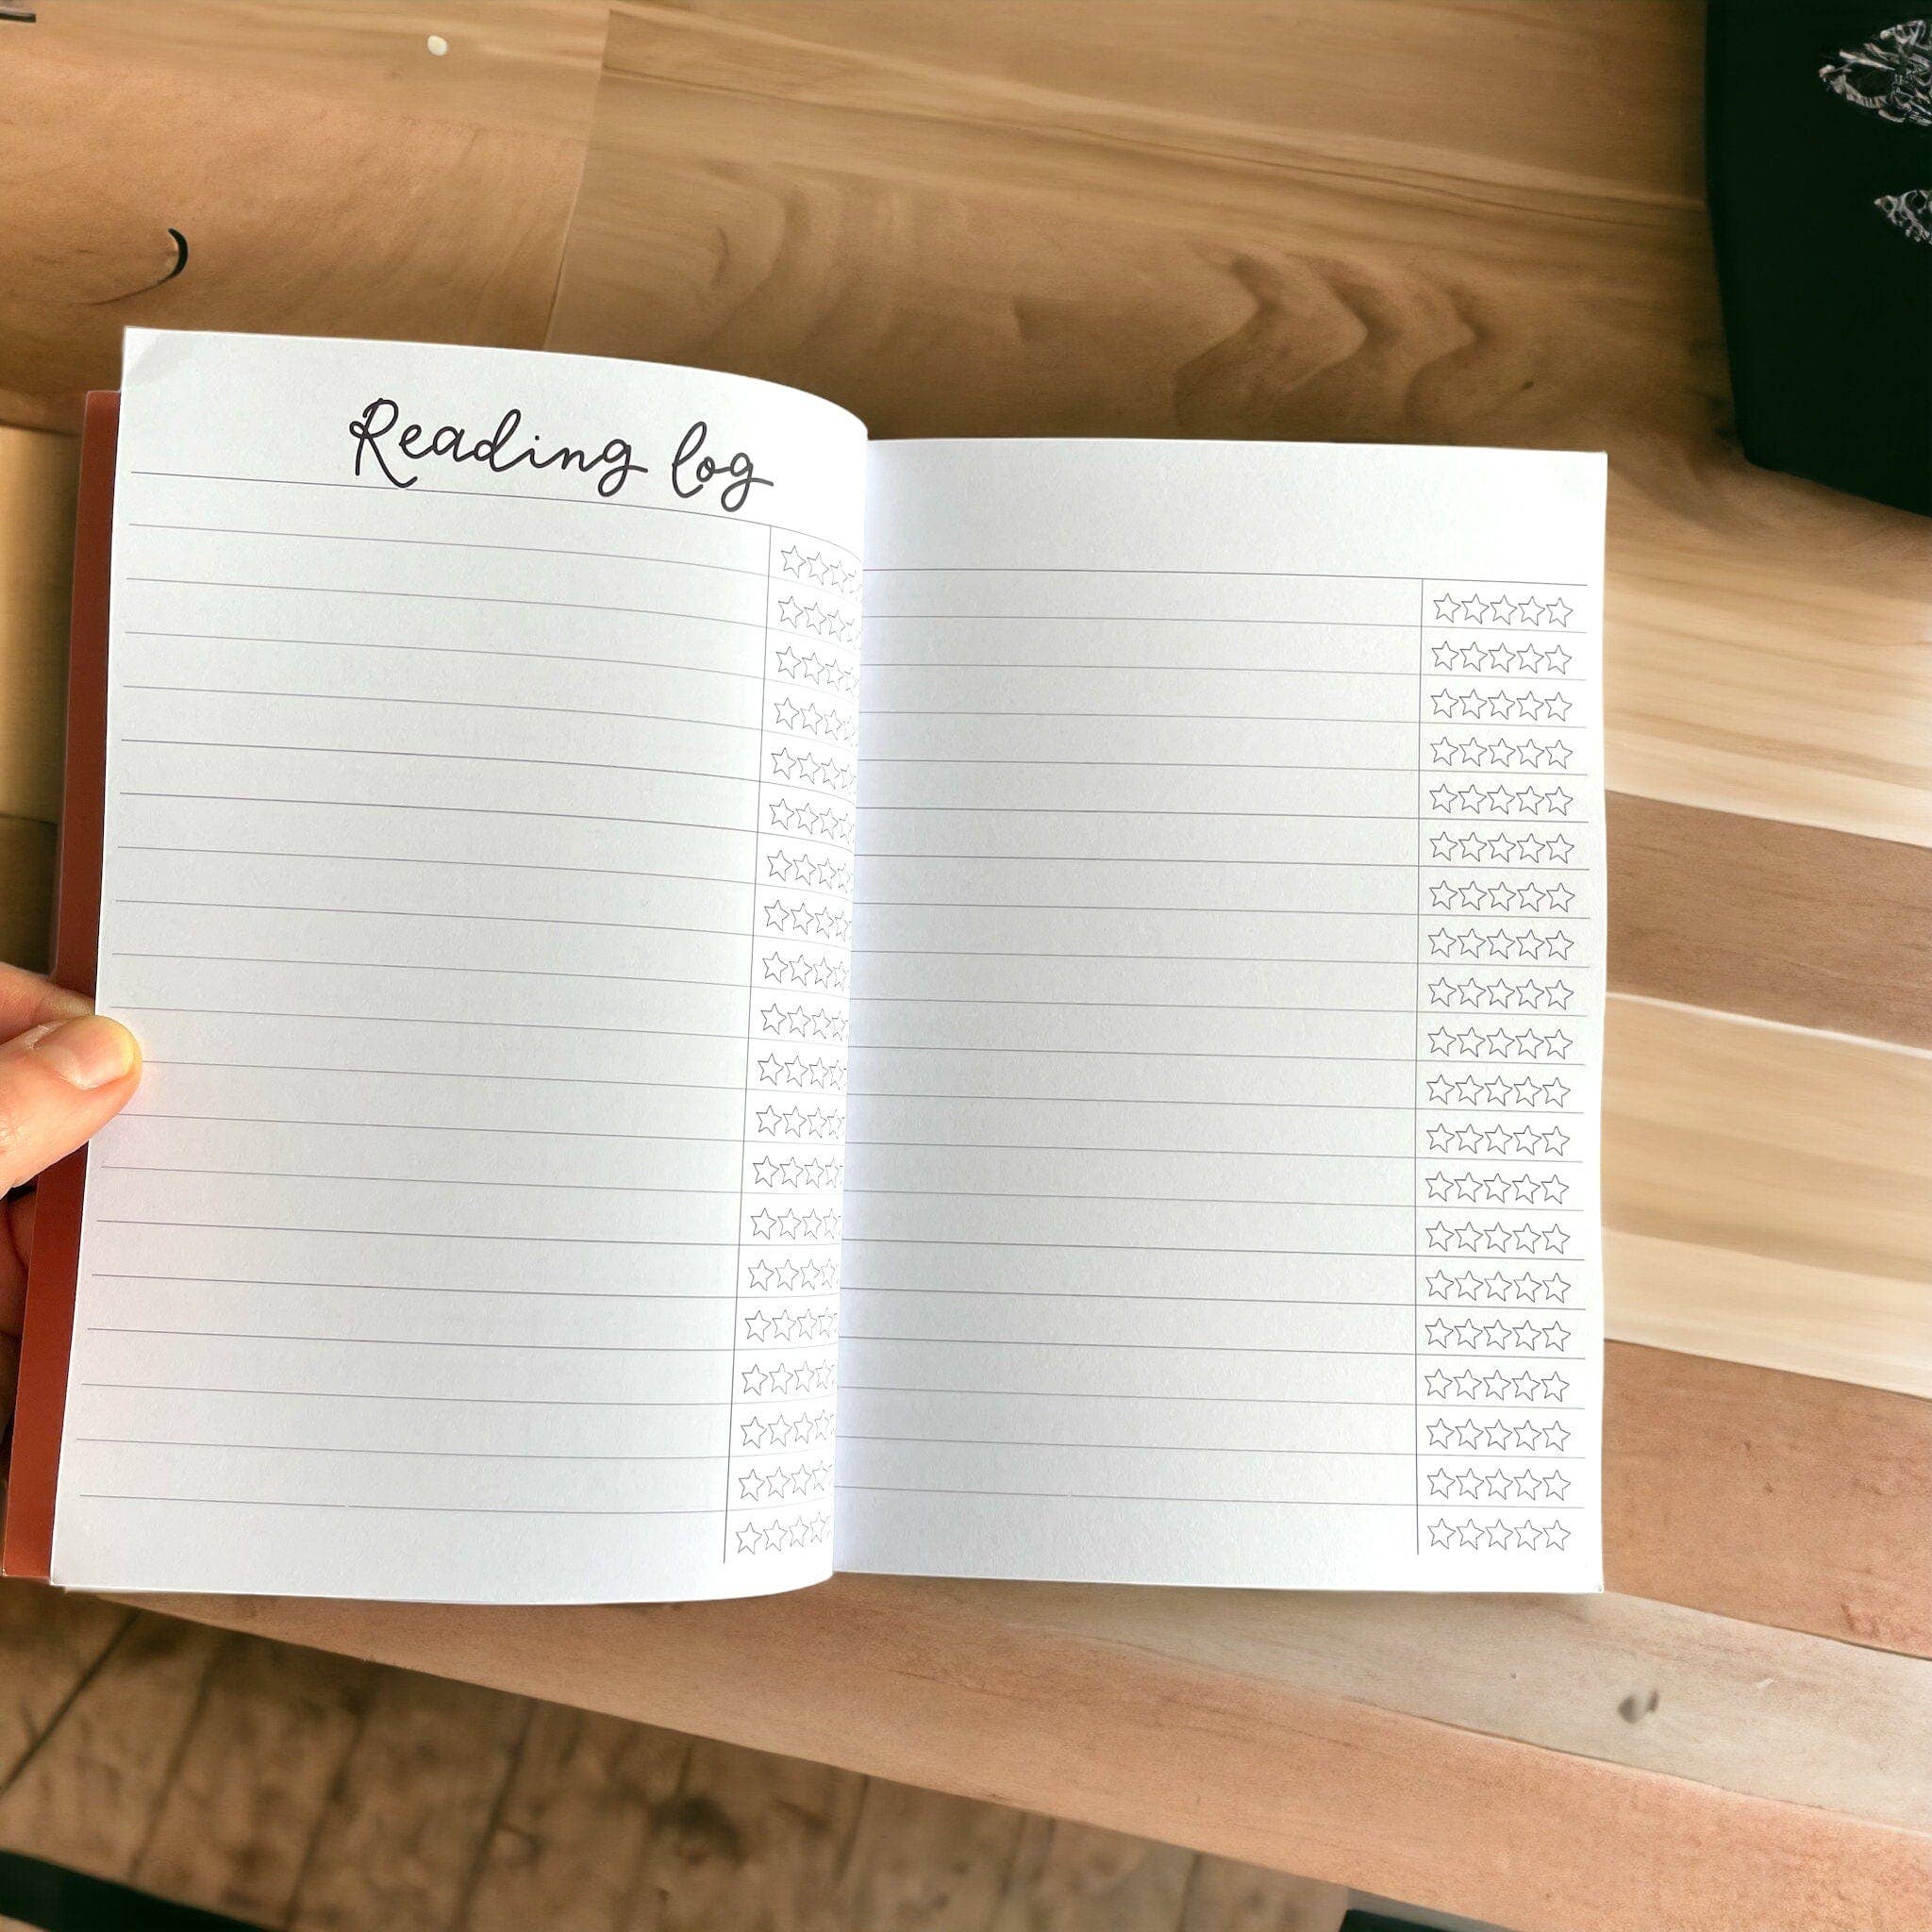 Reading log